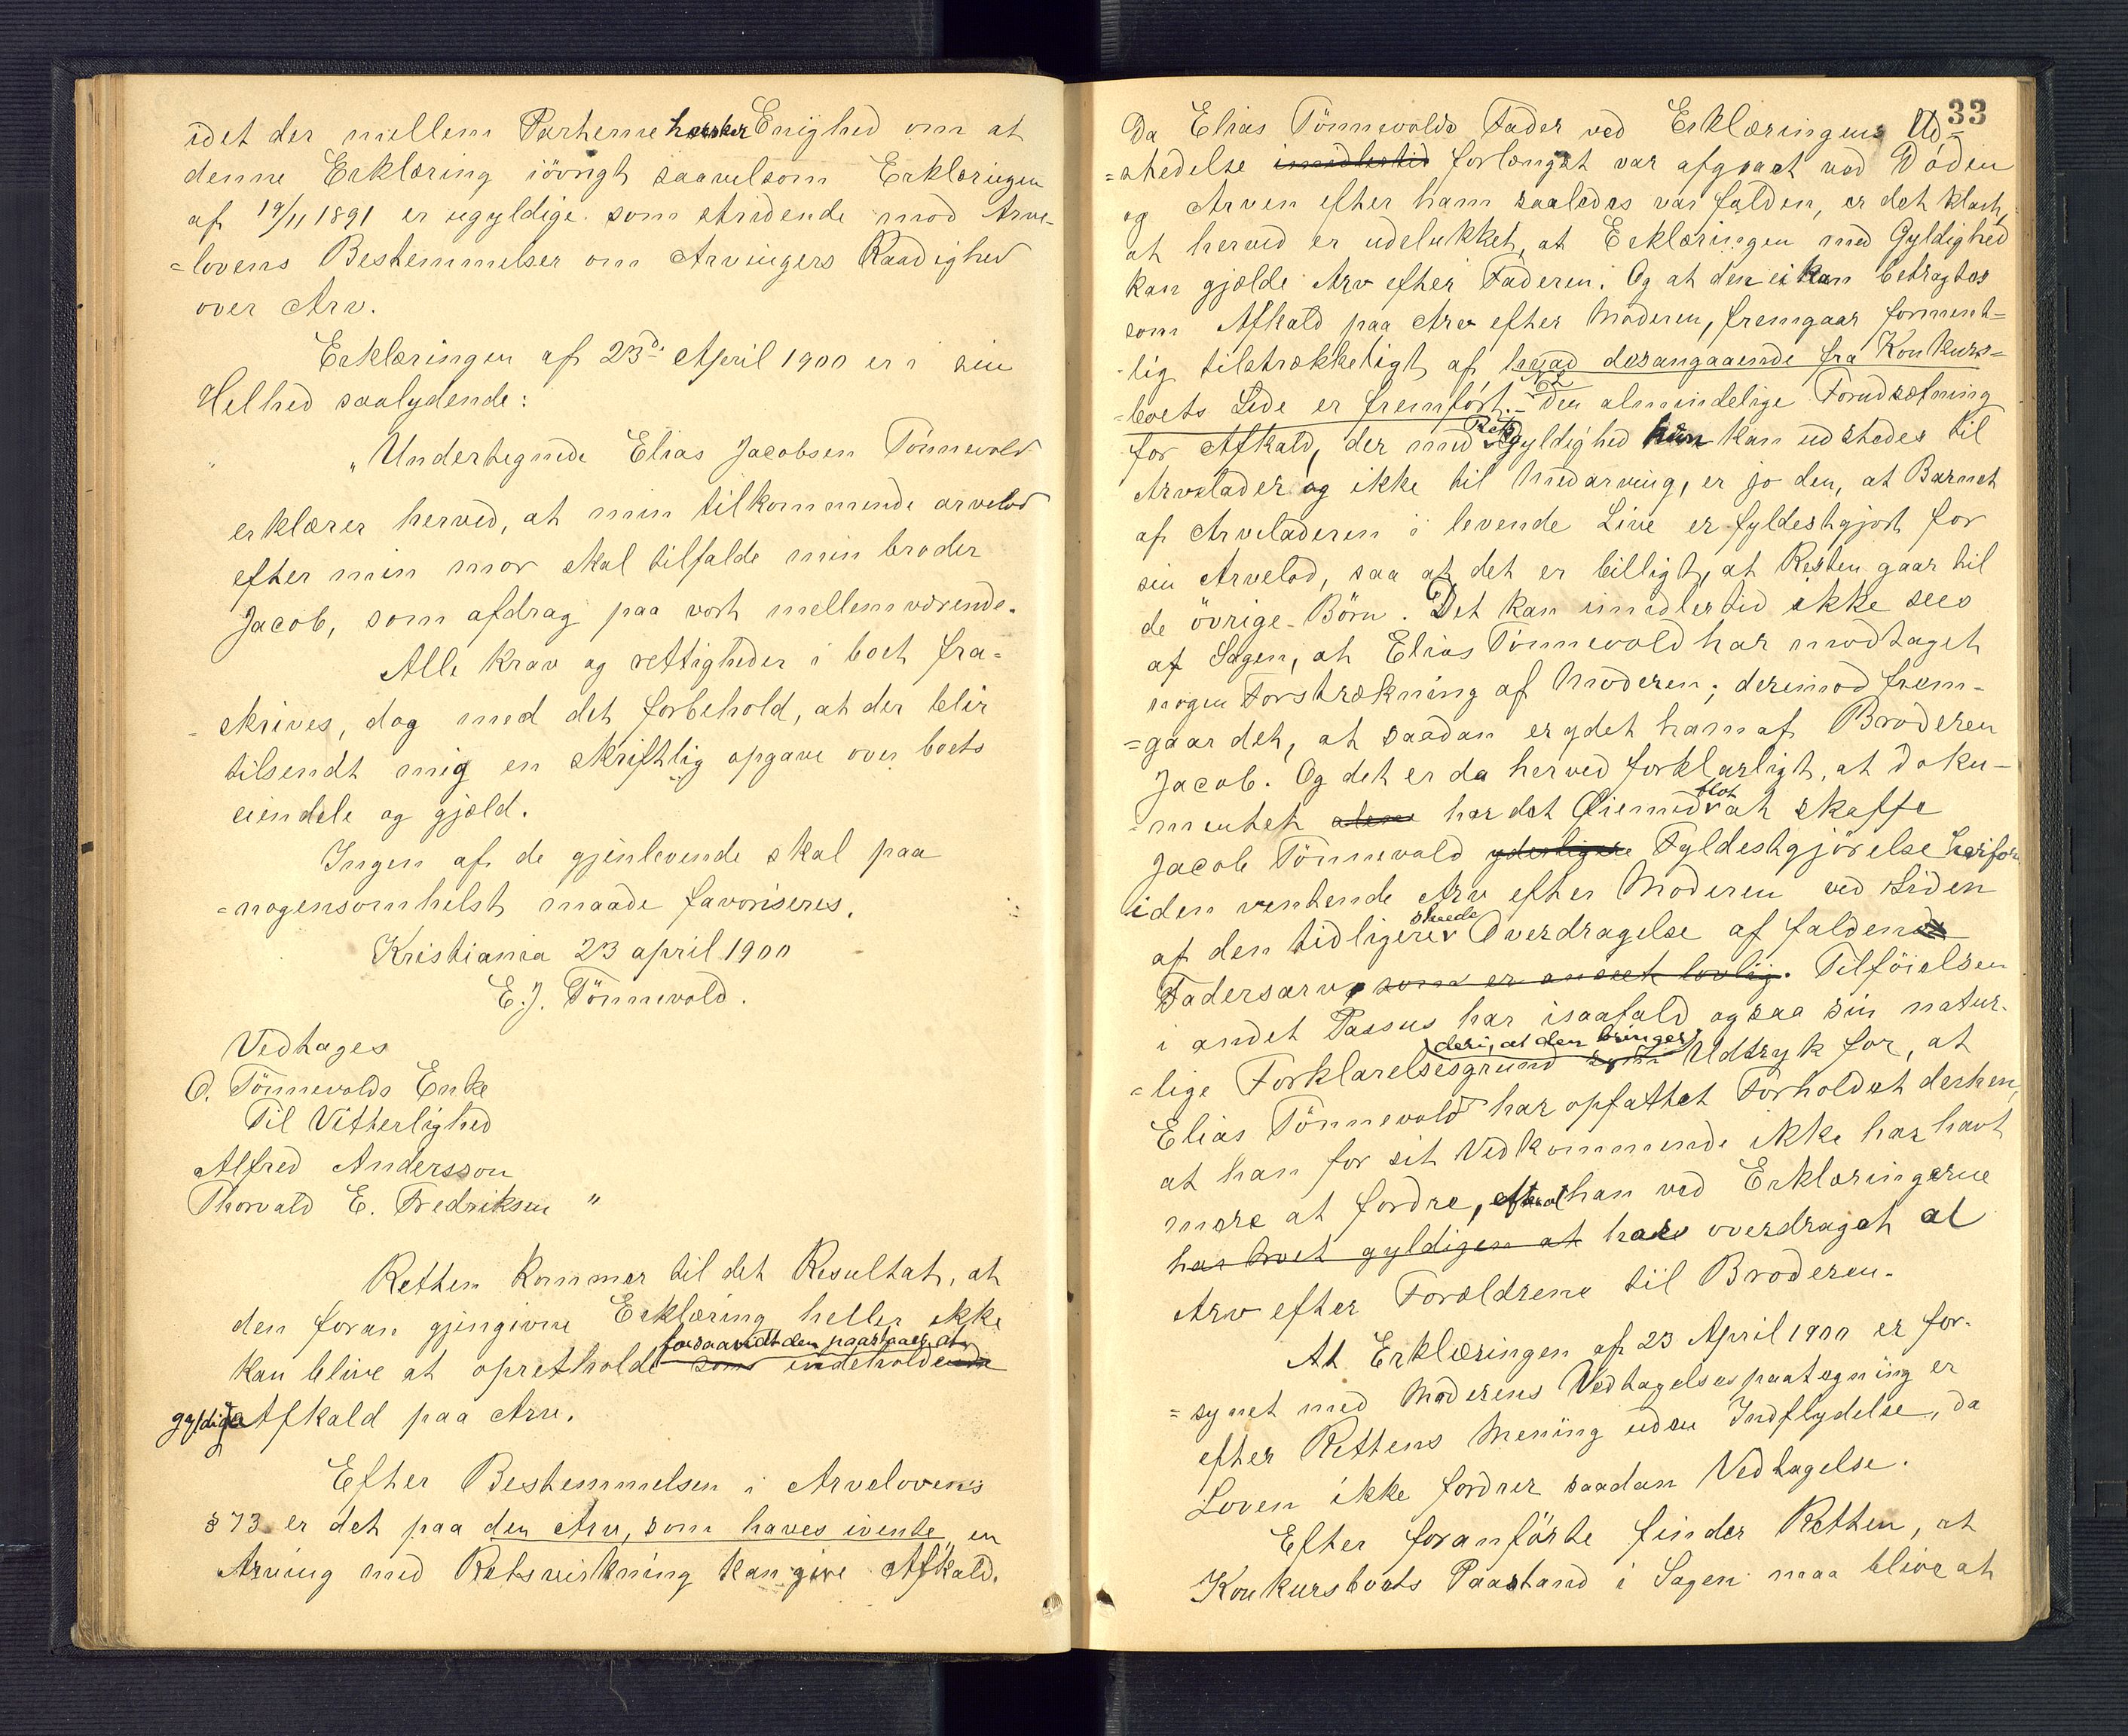 idet der mellem Parterne hersker Enighed om at
denne Erklæring iövrigt saavelsom Erklæringen
af 19/11 1891 er ugyldige som stridende mod Arve-
=lovens Bestemmelser om Arvingers Raadighed
over Arv.
Erklæringen af 23de April 1900 er i sin
Helhed saalydende:
"„Undertegnede Elias Jacobsen Tönnevold
erklærer herved, at min tilkommende arvelod
efter min mor skal tilfalde min broder
Jacob, som afdrag paa vort mellemværende.
Alle krav og rettigheder i boet fra=
=skrives, dog med det forbehold, at der blir
tilsendt mig en skriftlig opgave over boets
eiendele og gjæld.
Ingen af de gjenlevende skal paa
=nogensomhelst maade favoriseres.
Kristiania 23 april 1900
E. J. Tönnevold.
Vedtages
O. Tönnevolds Enke
Til Vitterlighed
Alfred Andersson
Thorvald E. Fredriksen "
Retten kommer til det Resultat, at
den foran gjengivne Erklæring heller ikke
forsaavidt den paastaaes at
kan blive at opretholde som indeholdende
gyldigt Afkald paa Arv.
Efter Bestemmelsen i Arvelovens
§ 73 er det paa den Arv, som haves ivente, en
Arving med Retsvirkning kan give Afkald.
33
Da Elias Tönnevolds Fader ved Erklæringens Ud=
=stedelse imidlertid forlængst var afgaaet ved Döden
og Arven efter ham saaledes var falden, er det klart,
at herved er udelukket, at Erklæringen med Gyldighed
kan gjælde Arv efter Faderen. Og at den ei kan betragtes
som Afkald paa Arv efter Moderen, fremgaar forment=
=lig tilstrækkeligt af hvad desangaaende fra Konkurs=
=boets Side er fremfört. – Den almindelige Forudsætning
Rets
for Afkald, der med Gyldighed kun kan udstedes til
Arvelader og ikke til Medarving, er jo den, at Barnet
af Arveladeren i levende Live er fyldestgjort for
sin Arvelod, saa at det er billigt, at Resten gaar til
de övrige Börn. Det kan imidlertid ikke sees
af Sagen, at Elias Tönnevold har modtaget
nogen Forstrækning af Moderen; derimod frem-
=gaar det, at saadan er ydet ham af Broderen
Jacob. Og det er da herved forklarligt, at Doku-
blot
=mentet alene har det Øiemed at skaffe
Jacob Tönnevold yderligere Fyldestgjörelse herfor
iden ventende Arv efter Moderen ved Siden
skeede
af den tidligere Overdragelse af falden
Fadersarv, som er anseet lovlig. Tilföielsen
i andet Passus har isaafald ogsaa sin natur-
deri, at den bringer
=lige Forklarelsesgrund som Udtryk for, at
Elias Tönnevold har opfattet Forholdet derhen,
at han for sit Vedkommende ikke har havt
mere at fordre, efterat han ved Erklæringerne
har troet gyldigen at have overdraget al
Arv efter Forældrene til Broderen.
At Erklæringen af 23 April 1900 er for-
=synet med Moderens Vedtagelsespaategning er
efter Rettens Mening uden Indflydelse, da
Loven ikke fordrer saadan Vedtagelse.
Efter foranförte finder Retten, at
Konkursboets Paastand i Sagen maa blive at